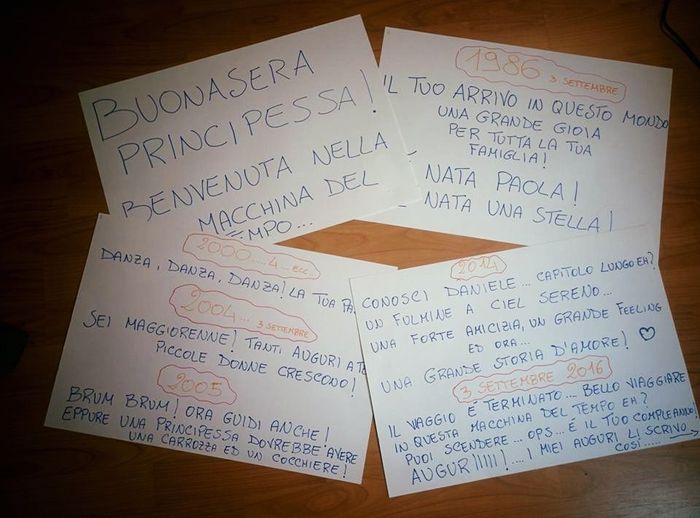 BUONASERA
PRINCIPESSA!
BENVENUTA NELLA
MACCHINA DEL
TEMPO...
1986 3 SETTEMBRE
IL TUO ARRIVO IN QUESTO MONDO
UNA GRANDE GIOIA
PER TUTTA LA TUA
FAMIGLIA!
NATA PAOLA!
NATA UNA STELLA!
2000....4...ECC..
DANZA, DANZA, DANZA! LA TUA
2004... 3 SETTEMBRE
SEI MAGGIORENNE! TANTI AUGURI A TE
PICCOLE DONNE CRESCONO!
2005
BRUM BRUM! ORA GUIDI ANCHE!
EPPURE UNA PRINCIPESSA DOVREBBE AVERE
UNA CARROZZA ED UN COCCHIERE!
2014
CONOSCI DANIELE... CAPITOLO LUNGO EH?
UN FULMINE A CIEL SERENO...
UNA FORTE AMICIZIA, UN GRANDE FEELING
ED ORA...
UNA GRANDE STORIA D'AMORE! ♡
3 SETTEMBRE 2016
IL VIAGGIO É TERMINATO... BELLO VIAGGIARE
IN QUESTA MACCHINA DEL TEMPO EH?
PUOI SCENDERE... OPS... É IL TUO COMPLEANNO!
AUGURIIIII!.... I MIEI AUGURI LI SCRIVO
COSÌ.....→